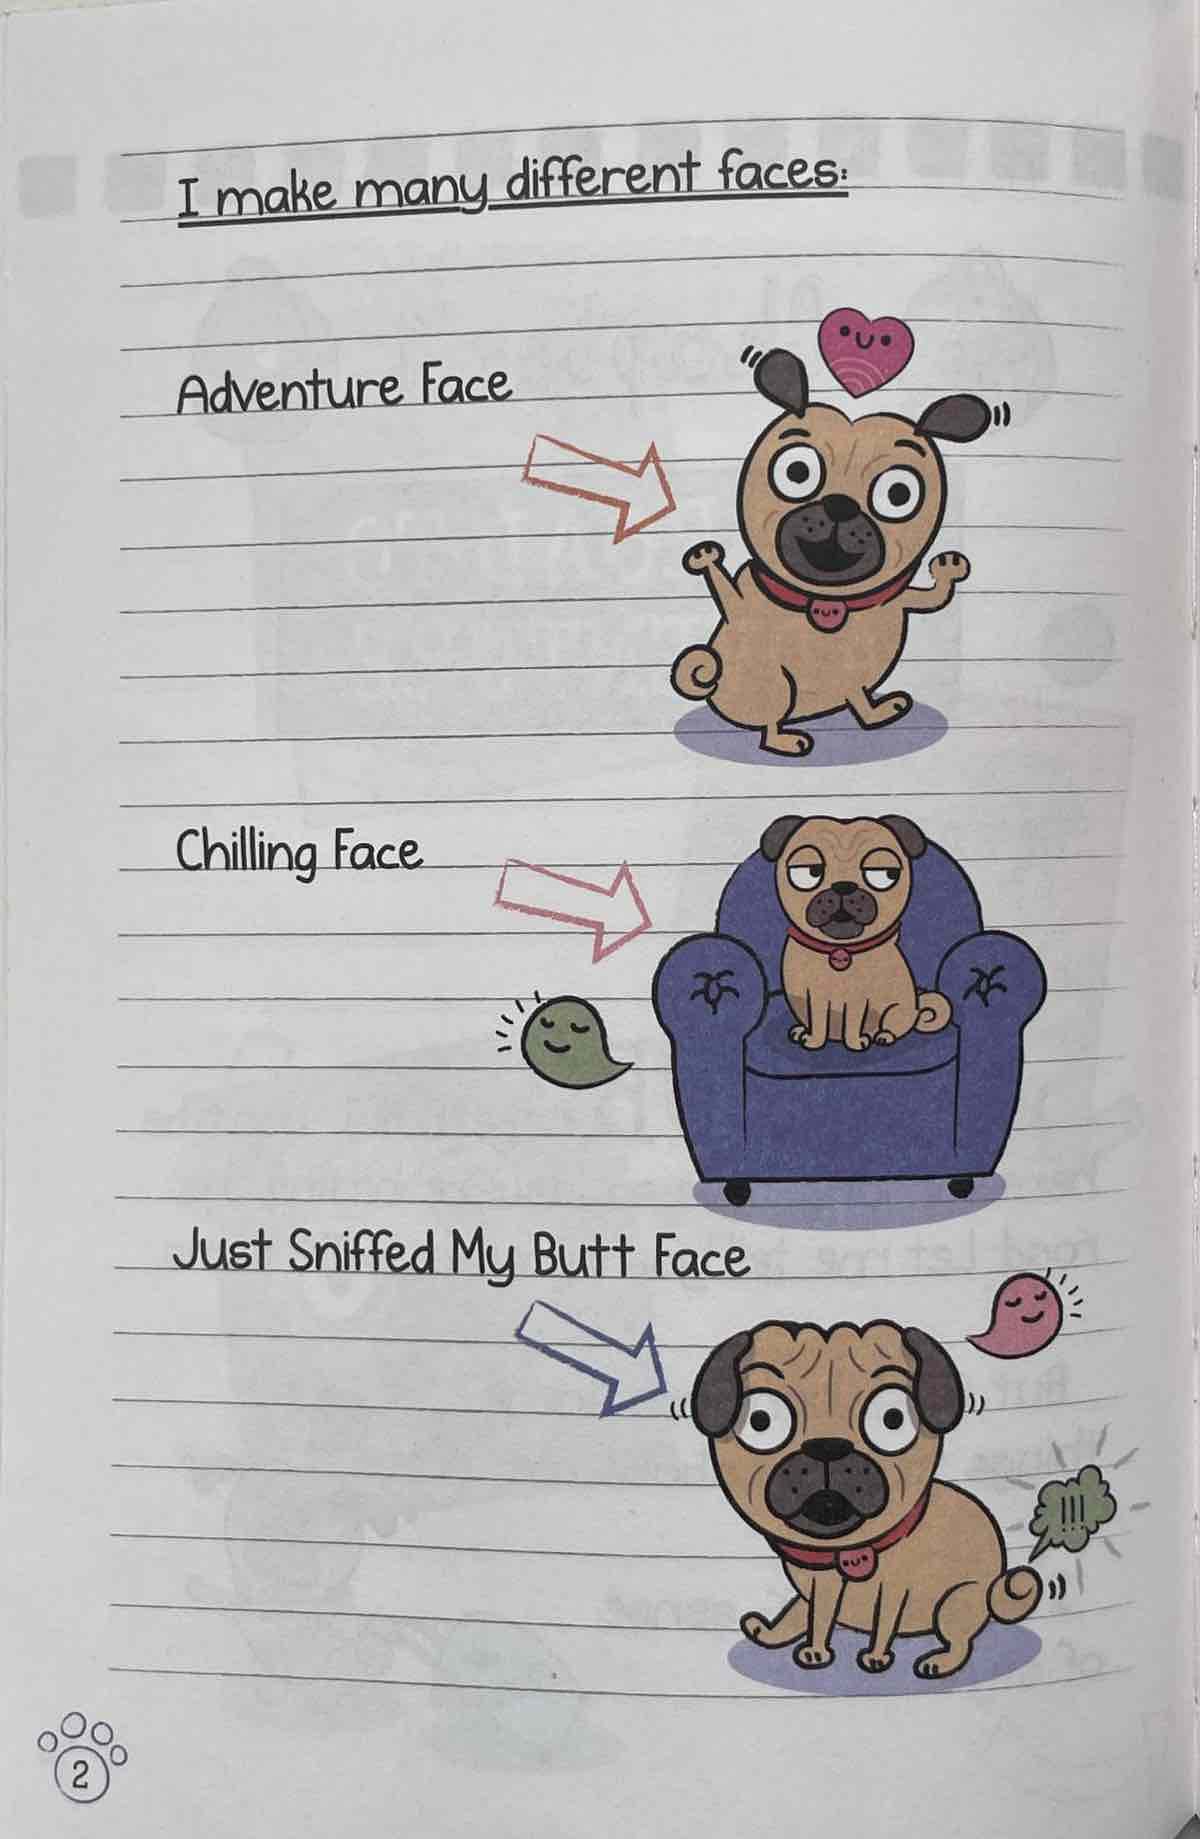 I make many different faces:
Adventure Face
Chilling Face
Just Sniffed My Butt Face
!!!
2